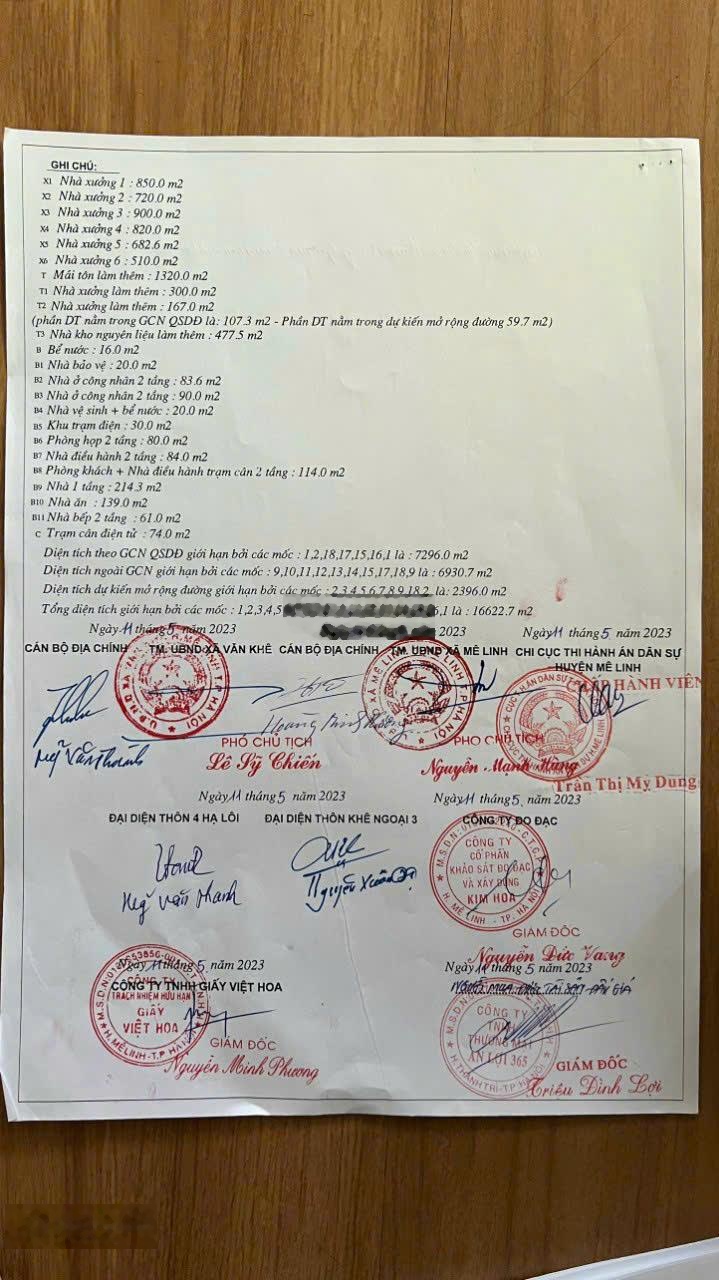 GHI CHÚ:
X1 Nhà xưởng 1 : 850.0 m2
X2 Nhà xưởng 2 : 720.0 m2
X3 Nhà xưởng 3 : 900.0 m2
X4 Nhà xưởng 4 : 820.0 m2
X5 Nhà xưởng 5 : 682.6 m2
X6 Nhà xưởng 6 : 510.0 m2
T Mái tôn làm thêm : 1320.0 m2
T1 Nhà xưởng làm thêm : 300.0 m2
T2 Nhà xưởng làm thêm : 167.0 m2
(phần DT nằm trong GCN QSDĐ là: 107.3 m2 - Phần DT nằm trong dự kiến mở rộng đường 59.7 m2)
T3 Nhà kho nguyên liệu làm thêm : 477.5 m2
B Bể nước : 16.0 m2
B1 Nhà bảo vệ : 20.0 m2
B2 Nhà ở công nhân 2 tầng : 83.6 m2
B3 Nhà ở công nhân 2 tầng : 90.0 m2
B4 Nhà vệ sinh + bể nước : 20.0 m2
B5 Khu trạm điện : 30.0 m2
B6 Phòng họp 2 tầng : 80.0 m2
B7 Nhà điều hành 2 tầng : 84.0 m2
B8 Phòng khách + Nhà điều hành trạm cân 2 tầng : 114.0 m2
B9 Nhà 1 tầng : 214.3 m2
B10 Nhà ăn : 139.0 m2
B11 Nhà bếp 2 tầng : 61.0 m2
C Trạm cân điện tử : 74.0 m2
Diện tích theo GCN QSDĐ giới hạn bởi các mốc : 1,2,18,17,15,16,1 là : 7296.0 m2
Diện tích ngoài GCN giới hạn bởi các mốc : 9,10,11,12,13,14,15,17,18,9 là : 6930.7 m2
Diện tích dự kiến mở rộng đường giới hạn bởi các mốc : 2,3,4,5,6,7,8,9,18,2 là: 2396.0 m2
Tổng diện tích giới hạn bởi các mốc : 1,2,3,4,5 6,1 là : 16622.7 m2
Ngày 11 tháng 5 năm 2023 2023 Ngày 11 tháng 5 năm 2023
CÁN BỘ ĐỊA CHÍNH TM. UBND XÃ VĂN KHÊ CÁN BỘ ĐỊA CHÍNH TM. UBND XÃ MÊ LINH CHI CỤC THI HÀNH ÁN DÂN SỰ
HUYỆN MÊ LINH
CHẤP HÀNH VIÊN
PHÓ CHỦ TỊCH PHÓ CHỦ TỊCH
Lê Sỹ Chiên Nguyễn Mạnh Hùng
Trần Thị Mỹ Dung
Ngày 11 tháng 5 năm 2023 Ngày 11 tháng 5 năm 2023
ĐẠI DIỆN THÔN 4 HẠ LÔI ĐẠI DIỆN THÔN KHÊ NGOẠI 3 CÔNG TY ĐO ĐẠC
CÔNG TY
CỔ PHẦN
KHẢO SÁT ĐO ĐẠC
VÀ XÂY DỰNG
KIM HOA
H. MÊ LINH - TP. HÀ NỘI
GIÁM ĐỐC
Nguyễn Đức Vang
Ngày 11 tháng 5 năm 2023 Ngày 11 tháng 5 năm 2023
CÔNG TY TNHH GIẤY VIỆT HOA
CÔNG TY
TRÁCH NHIỆM HỮU HẠN
GIẤY
VIỆT HOA
GIÁM ĐỐC
Nguyễn Minh Phương
CÔNG TY
TNHH
THƯƠNG MẠI
AN LỢI 365
H. THANH TRÌ - T.P HÀ NỘI
GIÁM ĐỐC
Triệu Đình Lợi